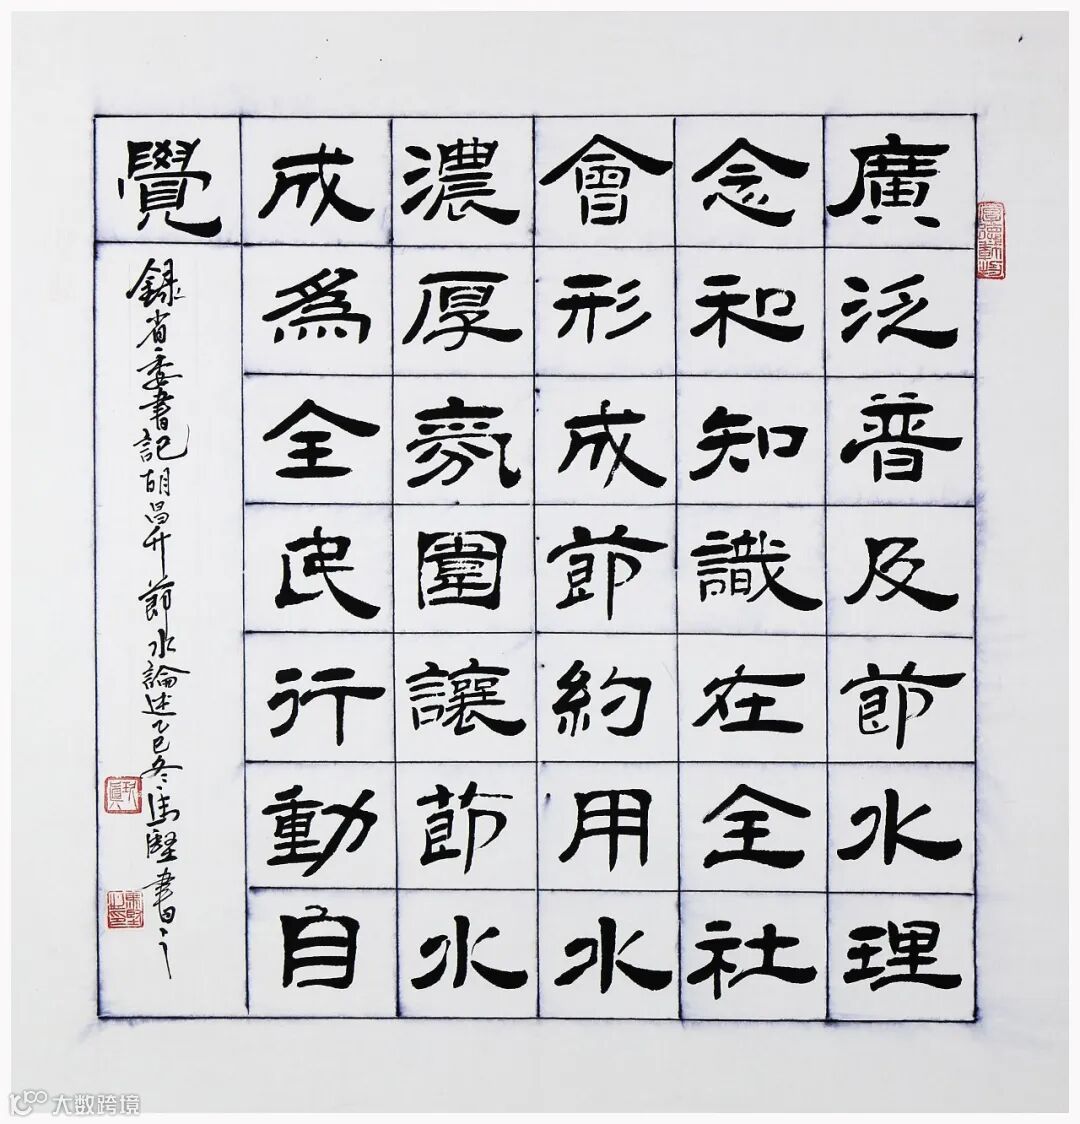 廣泛普及節水理
念和知識在全社
會形成節約用水
濃厚氛圍讓節水
成為全民行動自
覺
録省委書記胡昌升節水論述乙巳冬馮堅書之
大数跨境